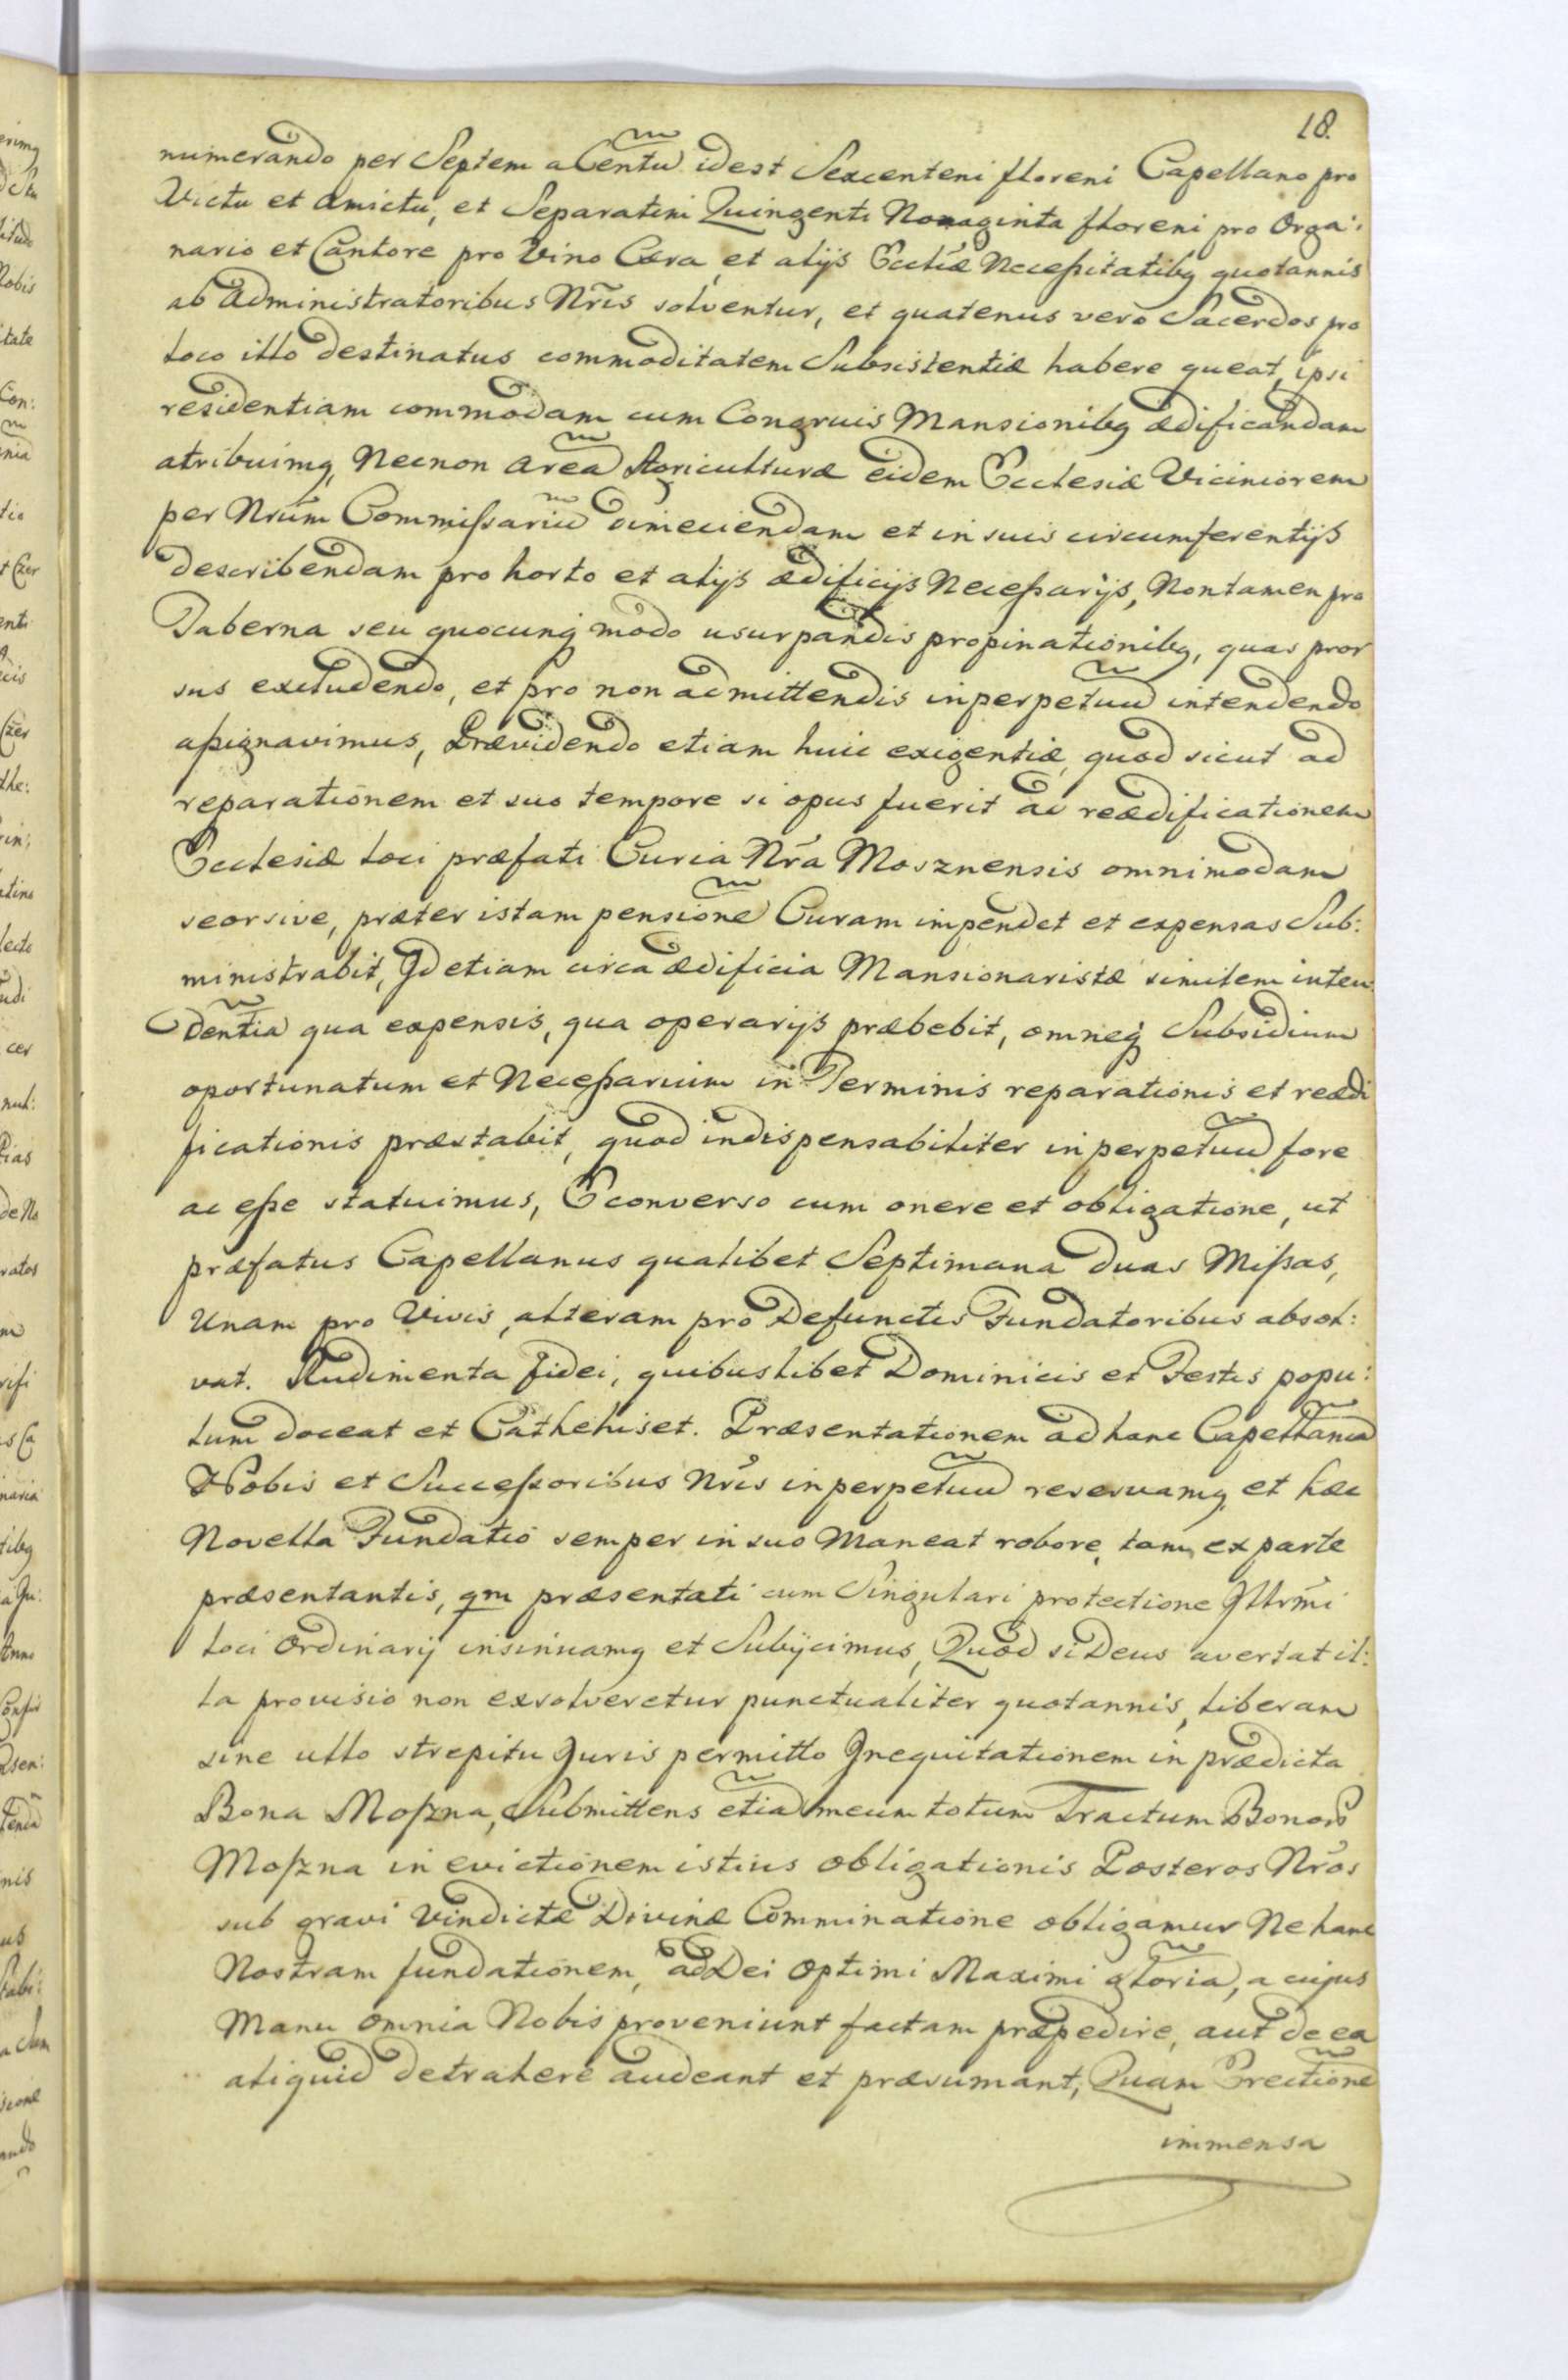 18.
numerando per Septem a Centũ idest Sexcenteni floreni Capellano pro
Victu et Amictu, et Separatim Quingenti Nonaginta floreni pro Orga:
nario et Cantore pro Vino Cera et alijs Eccliæ Necessitatibq quotannis
ab Administratoribus Nr̃is solventur, et quatenus vero Sacerdos pro
loco illo destinatus commoditatem Subsistentiæ habere queat, ipsi
residentiam commodam cum Congruis Mansionibq ædificandam
atribuimq, Necnon Areã Agriculturæ eidem Ecclesiæ Viciniorem
per Nrũm Commissariũ dimeciendam et in suis circumferentijs
describendam pro horto et alijs ædificijs Necessarijs, Nontamen pro
Taberna seu quocunq modo usurpandis propinationibq, quas pror
sus excludendo, et pro non admittendis inperpetuũ intendendo
assignavimus, Prævidendo etiam huic exigentiæ, quod sicut ad
reparationem et suo tempore si opus fuerit ad reædificationem
Ecclesiæ loci præfati Curia Nr̃a Mosznensis omnimodam
seorsive, præter istam pensionẽ Curam impendet et expensas Sub:
ministrabit, Id etiam circa ædificia Mansionaristæ similem inten
dentiã qua expensis, qua operarijs præbebit, omneq Subsidium
oportunatum et Necessarium in Terminis reparationis et reædi
ficationis præstabit, quod indispensabiliter inperpetuũ fore
ac esse statuimus, Econverso cum onere et obligatione, ut
præfatus Capellanus qualibet Septimana duas Missas,
Unam pro Vivis, alteram pro Defunctis Fundatoribus absol:
vat. Rudimenta fidei, quibuslibet Dominicis et Festis popu:
lum doceat et Cathehiset. Præsentationem ad hanc Capellaniã
Nobis et Successoribus Nr̃is inperpetuũ reservamq et hæc
Novella Fundatio semper in suo Maneat robore, tam ex parte
præsentantis, qm præsentati cum Singulari protectione Illr̃mi
loci Ordinarij insinuamq et Subijcimus, Quod si Deus avertat il:
la provisio non exsolveretur punctualiter quotannis, liberam
sine ullo strepitu Juris permitto Inequitationem in prædicta
Bona Moszna, Submittens etiã meum totum Tractum Bonorũ
Moszna in evictionem istius obligationis Posteros Nr̃os
sub gravi Vindictæ Divinæ Comminatione obligamur Ne hanc
Nostram fundationem, ad Dei Optimi Maximi gloriã, a cujus
Manu omnia Nobis proveniunt factam præpedire, aut de ea
aliquid detrahere audeant et præsumant, Quam Erectionẽ
immensa